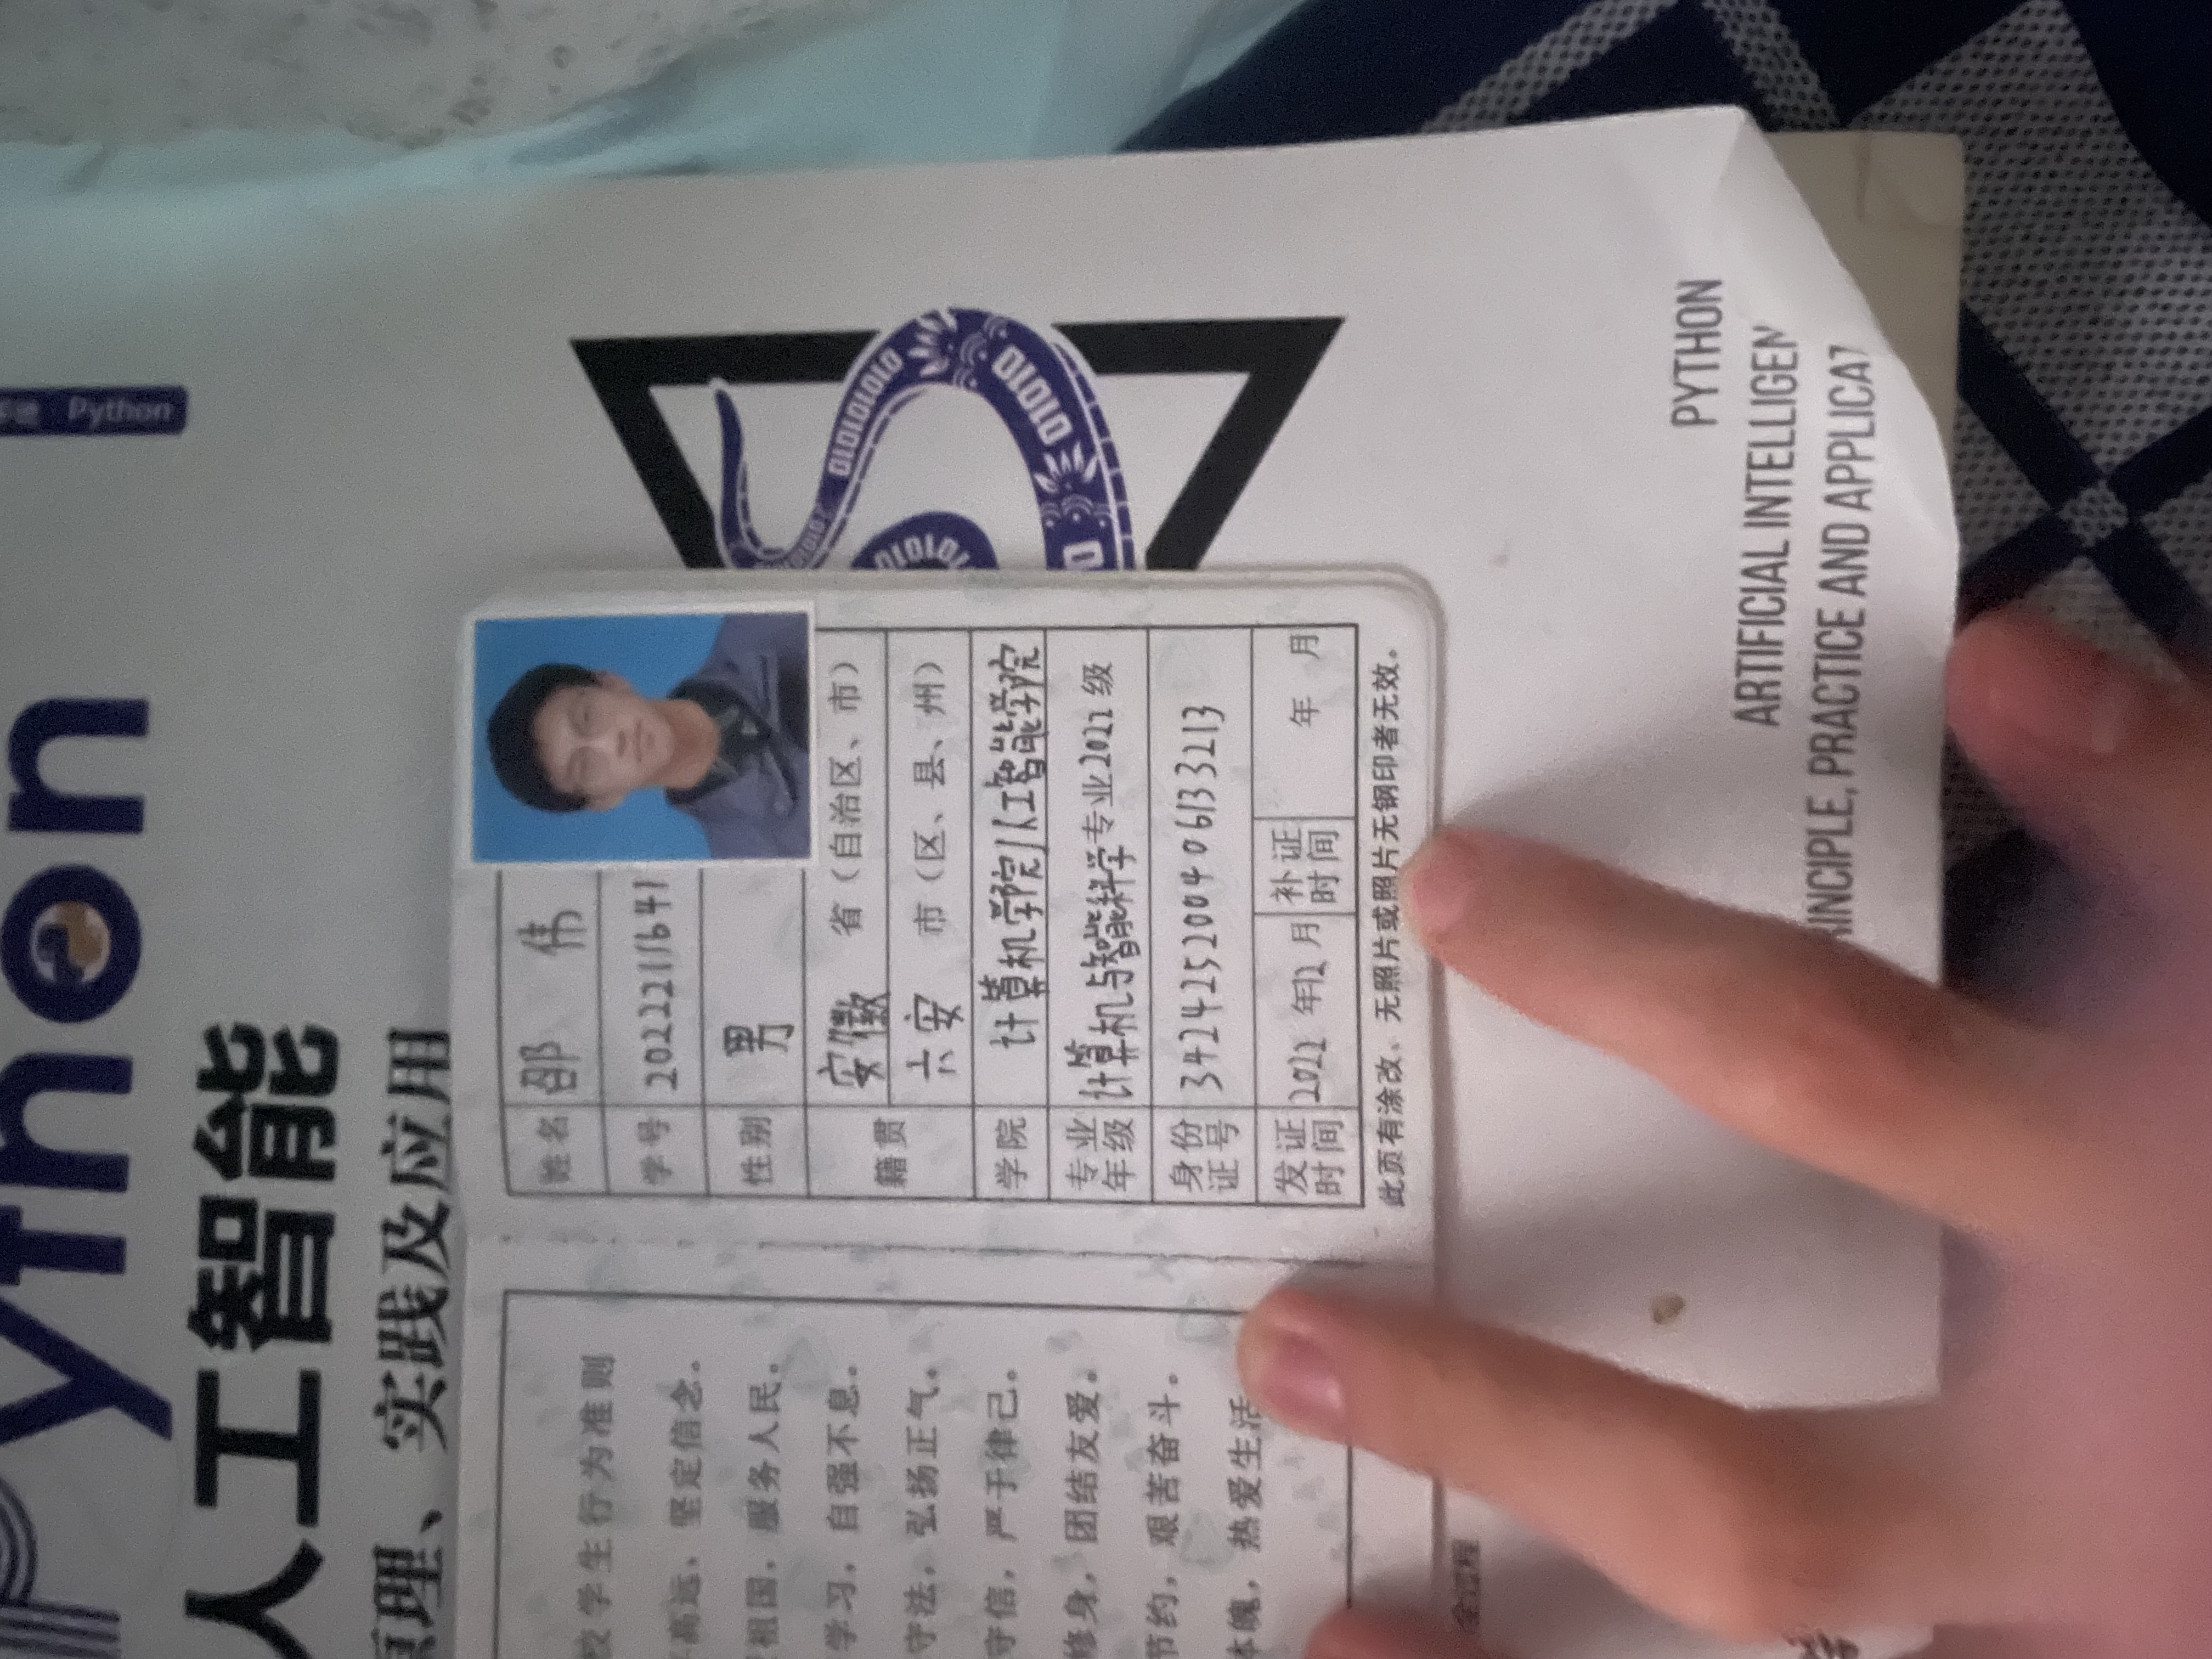 Python
Python
人工智能
原理、实践及应用
校学生行为准则
高远，坚定信念。
祖国，服务人民。
学习，自强不息。
守法，弘扬正气。
守信，严于律己。
修身，团结友爱。
节约，艰苦奋斗。
体魄，热爱生活
姓名 邵 伟
学号 2022211641
性别 男
籍贯 安徽 省（自治区、市）
六安 市（区、县、州）
学院 计算机学院/人工智能学院
专业年级 计算机与智能科学专业2022级
身份证号 342425200406133213
发证时间 2022年12月 补证时间 年 月
此页有涂改、无照片或照片无钢印者无效。
全过程
01010101010
01010
01010
PYTHON
ARTIFICIAL INTELLIGEN
RINCIPLE, PRACTICE AND APPLICAT